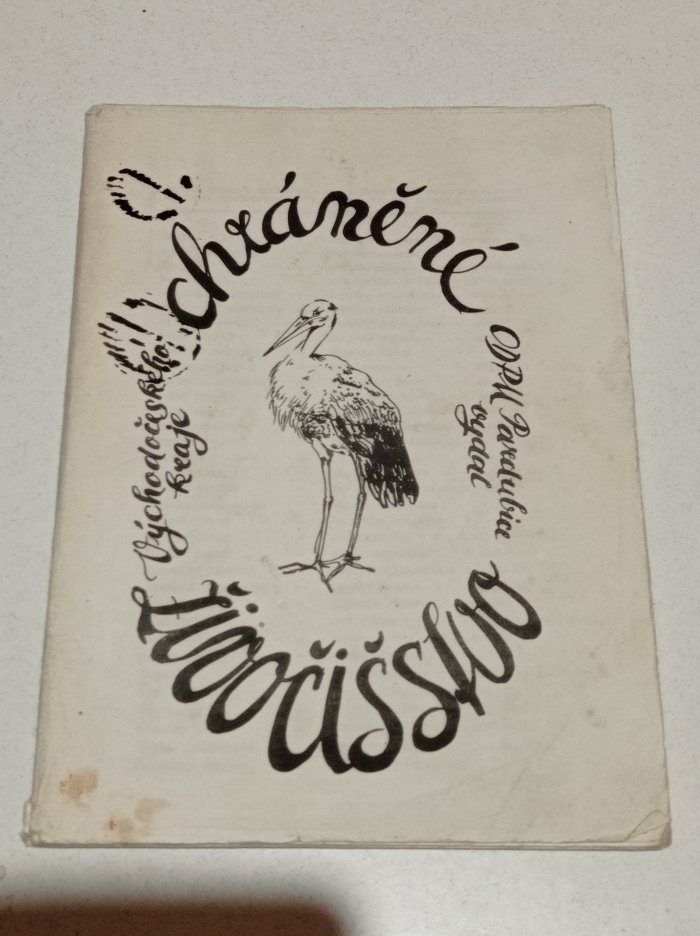 chráněné
Východočeského
kraje
ODPM Pardubice
vydal
živočišstvo